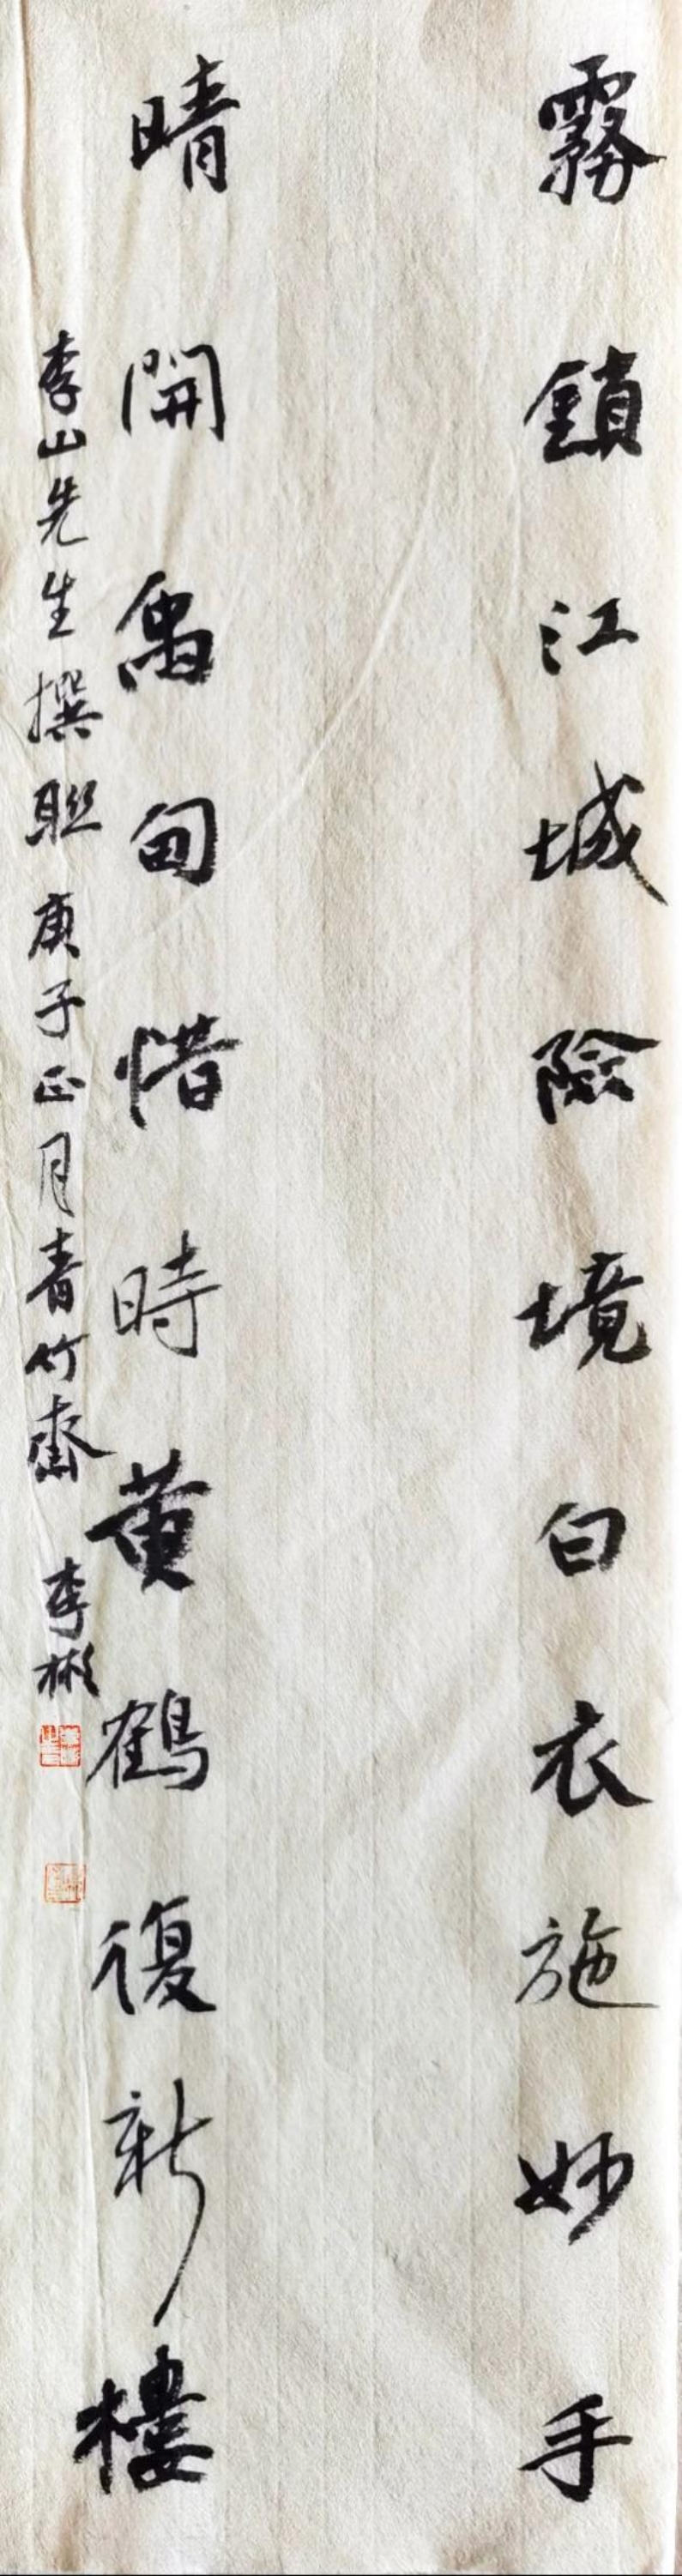 霧鎖江城險境白衣施妙手
晴開禹甸惜時黄鶴復新樓
李山先生撰聯 庚子正月青竹齋 李彬